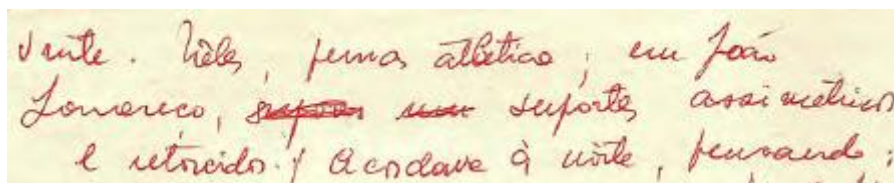 vinte. Nêles, pernas atlética; em João
Lourenço, supor um suportes assimétricos
e retorcido. / Acordava à noite, pensando: